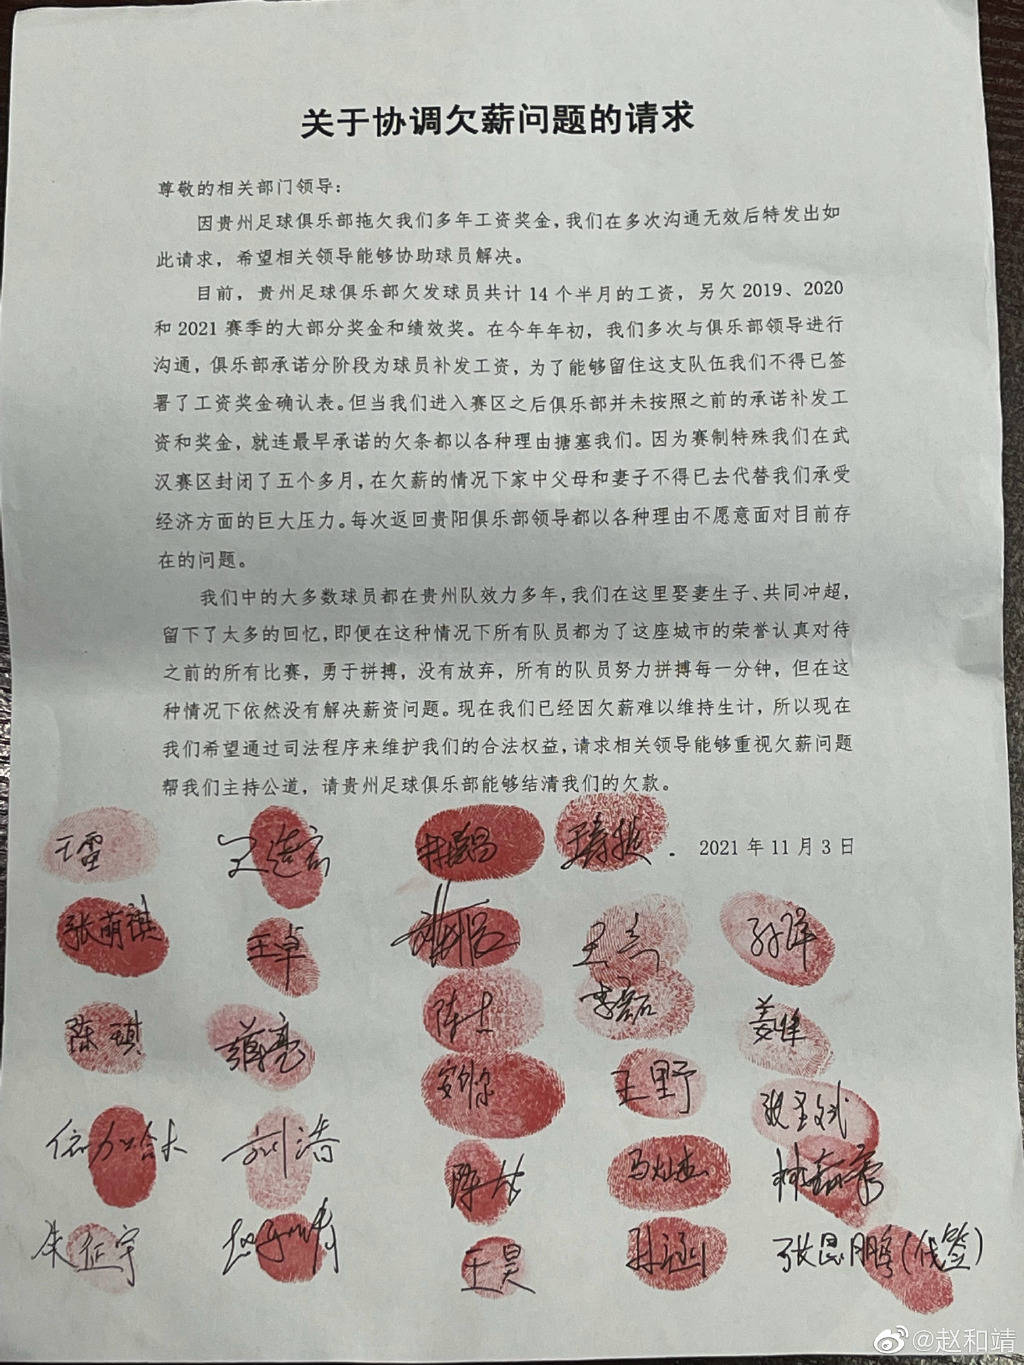 关于协调欠薪问题的请求
尊敬的相关部门领导：
因贵州足球俱乐部拖欠我们多年工资奖金，我们在多次沟通无效后特发出如
此请求，希望相关领导能够协助球员解决。
目前，贵州足球俱乐部欠发球员共计14个半月的工资，另欠2019、2020
和2021赛季的大部分奖金和绩效奖。在今年年初，我们多次与俱乐部领导进行
沟通，俱乐部承诺分阶段为球员补发工资，为了能够留住这支队伍我们不得已签
署了工资奖金确认表。但当我们进入赛区之后俱乐部并未按照之前的承诺补发工
资和奖金，就连最早承诺的欠条都以各种理由搪塞我们。因为赛制特殊我们在武
汉赛区封闭了五个多月，在欠薪的情况下家中父母和妻子不得已去代替我们承受
经济方面的巨大压力。每次返回贵阳俱乐部领导都以各种理由不愿意面对目前存
在的问题。
我们中的大多数球员都在贵州队效力多年，我们在这里娶妻生子、共同冲超，
留下了太多的回忆，即便在这种情况下所有队员都为了这座城市的荣誉认真对待
之前的所有比赛，勇于拼搏，没有放弃，所有的队员努力拼搏每一分钟，但在这
种情况下依然没有解决薪资问题。现在我们已经因欠薪难以维持生计，所以现在
我们希望通过司法程序来维护我们的合法权益，请求相关领导能够重视欠薪问题
帮我们主持公道，请贵州足球俱乐部能够结清我们的欠款。
2021年11月3日
王雷
张萌祺 王卓
陈琪 蒋亮 陈杰 李磊 姜峰
王野
刘浩
朱征宇 王昊 张思鹏（代签）
@赵和靖